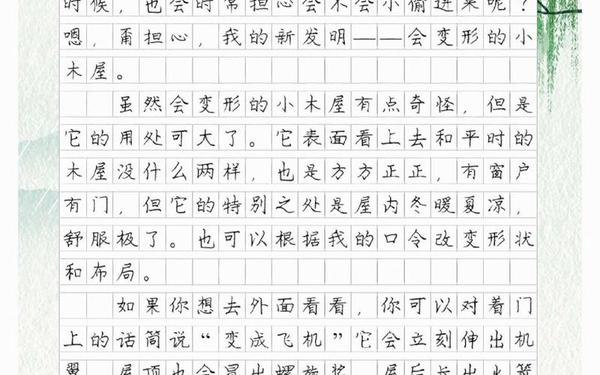 时候，也会时常担心会不会小偷进来呢？
嗯，甭担心，我的新发明——会变形的小
木屋。
虽然会变形的小木屋有点奇怪，但是
它的用处可大了。它表面看上去和平时的
木屋没什么两样，也是方方正正，有窗户
有门，但它的特别之处是屋内冬暖夏凉，
舒服极了。也可以根据我的口令改变形状
和布局。
如果你想去外面看看，你可以对着门
上的话筒说“变成飞机”它会立刻伸出机
翼，屋顶也会冒出螺旋桨，屋后长出火箭